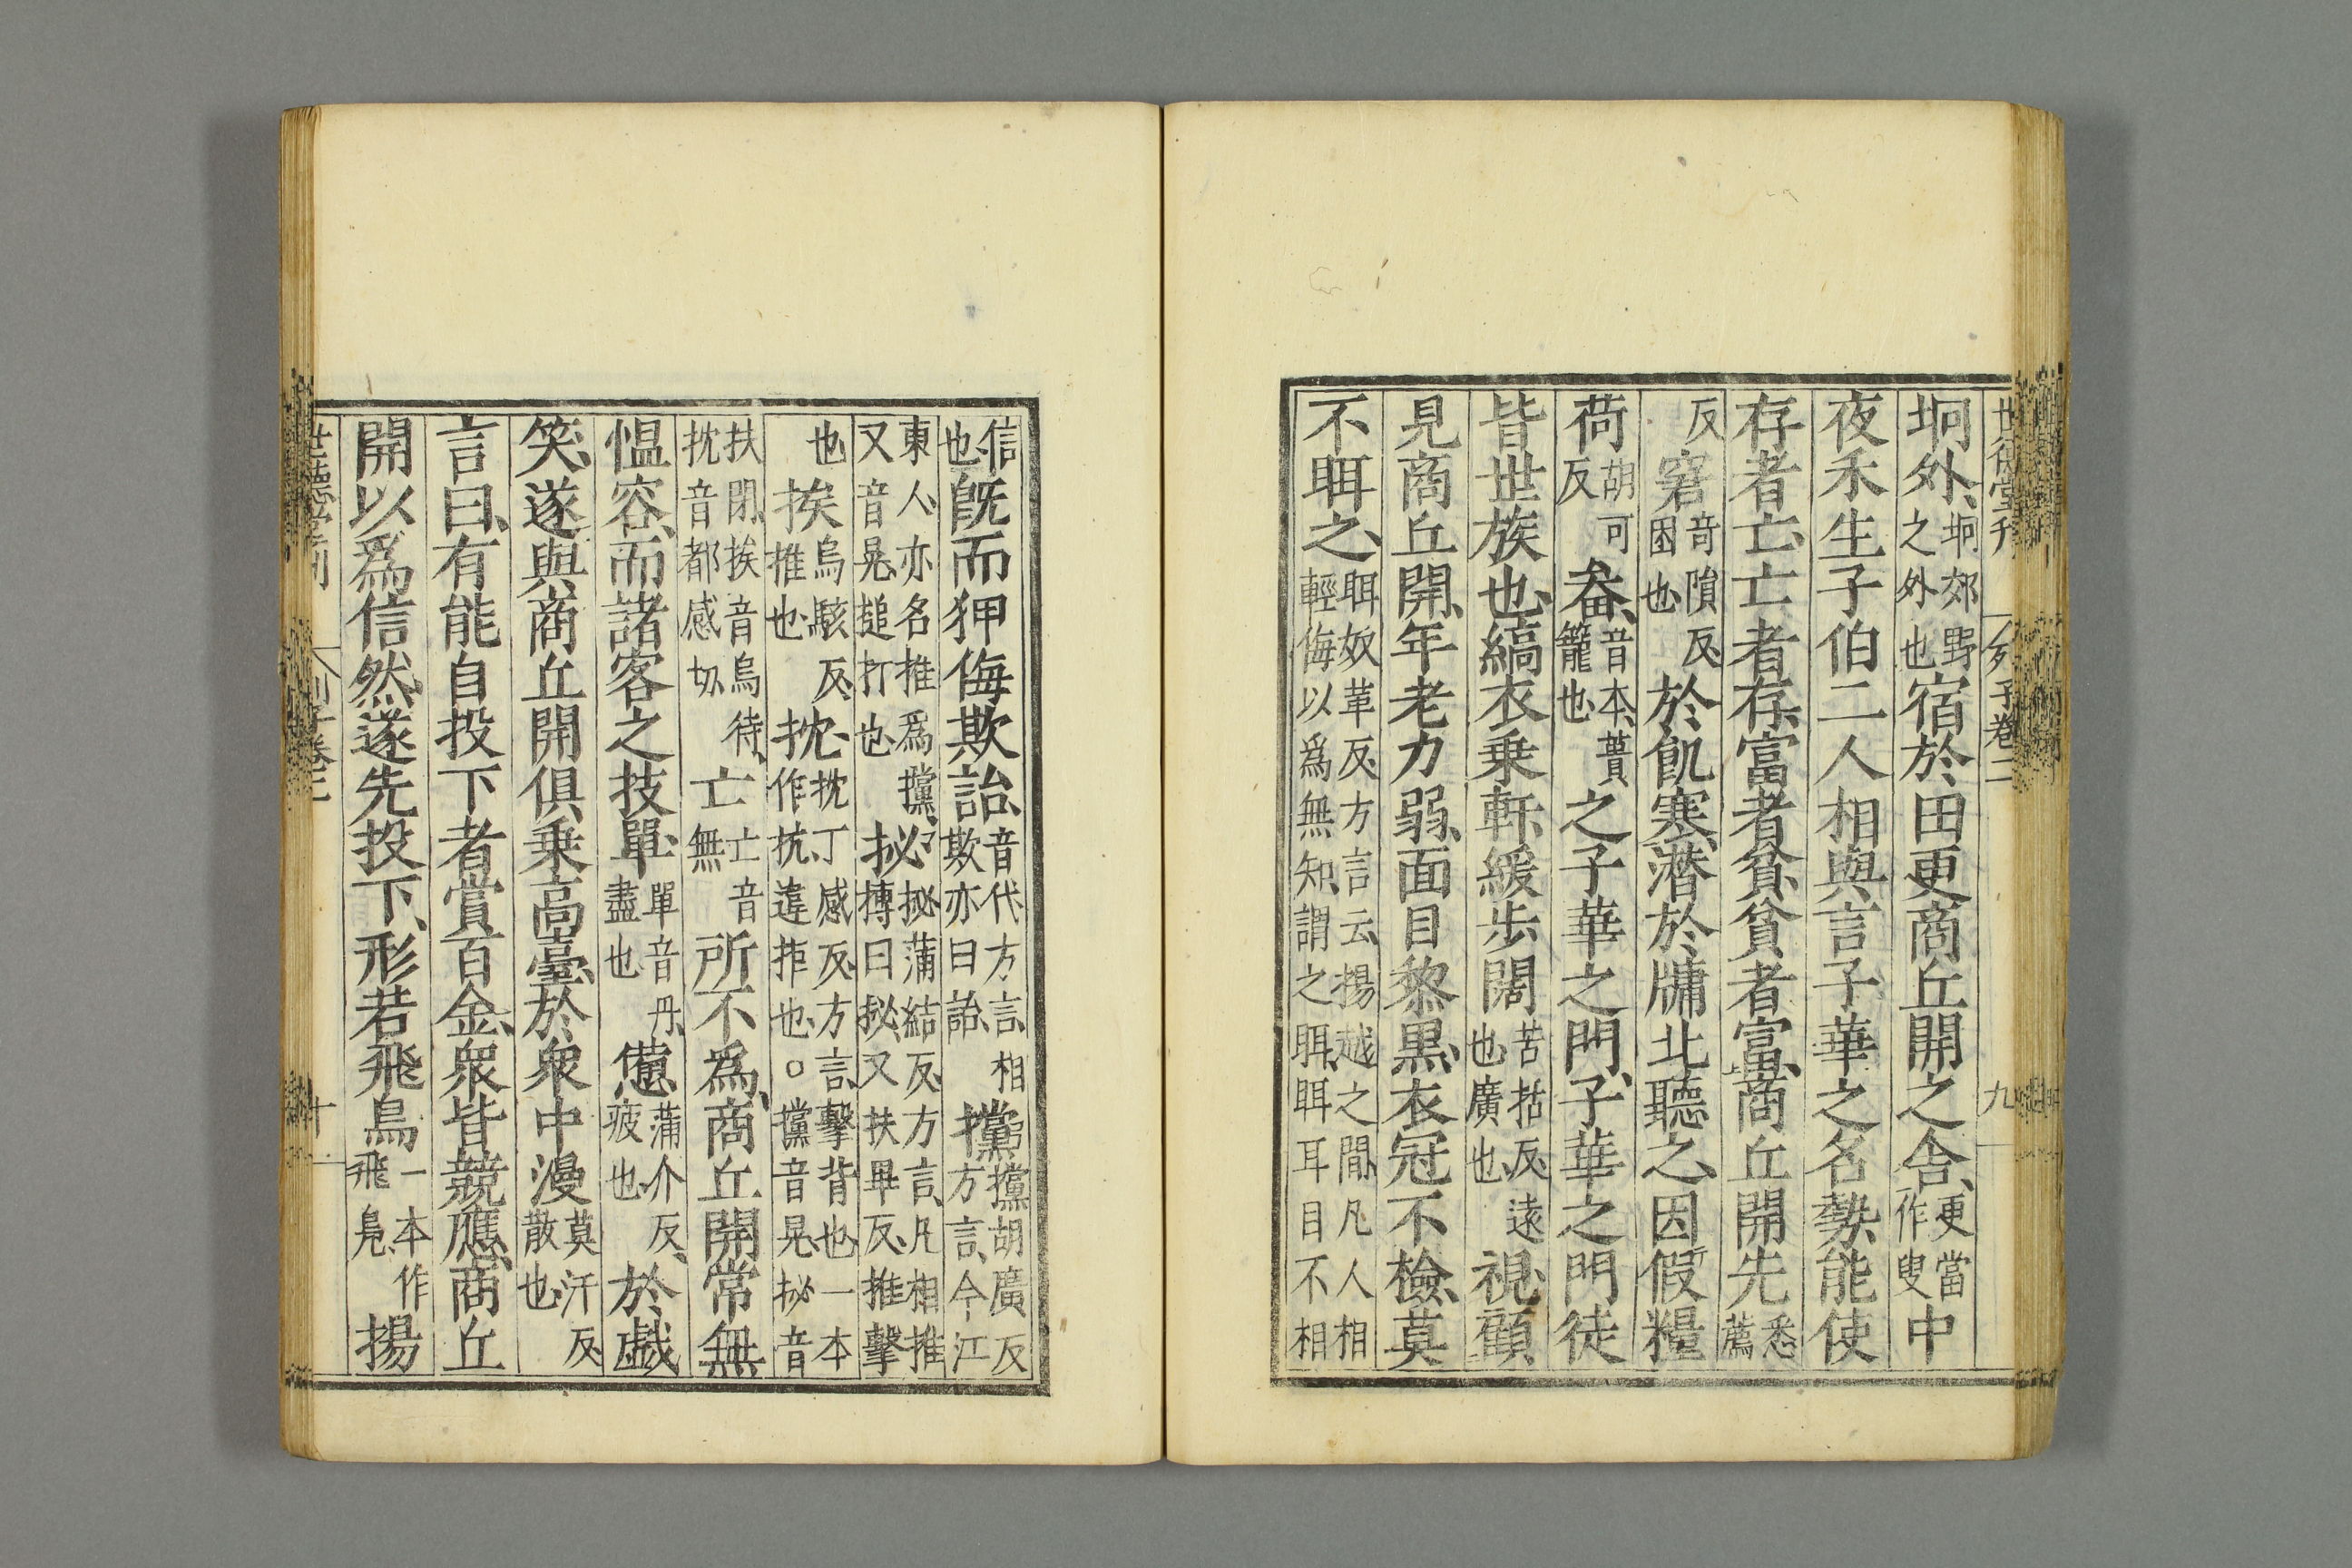 世德堂刊 列子卷二 九
坰外坰郊野之外也宿於田更商丘開之舍更當作叟中
夜禾生子伯二人相與言子華之名勢能使
存者亡亡者存富者貧貧者富商丘開先悉薦
反窘奇隕反困也於飢寒潛於牖北聽之因假糧
荷胡可反畚音本蕢籠也之子華之門子華之門徒
皆世族也縞衣乗軒緩步闊苦括反遠也廣也視顧
見商丘開年老力弱面目黎黒衣冠不檢莫
不眲之眲奴革反方言云揚越之間凡人相輕侮以爲無知謂之眲眲耳目不相
信也旣而狎侮欺詒音代方言相欺亦曰詒攩攩胡廣反方言今江
東人亦名推爲攩又音晃搥打也㧙㧙蒲結反方言凡相推搏曰㧙又扶畢反推擊
也挨烏駭反推也抌抌丁感反方言擊背也一本作抗違拒也○攩音晃㧙音
扶閉挨音烏待抌音都感切亡亡音無所不爲商丘開常無
慍容而諸客之技單單音丹盡也憊蒲介反疲也於戲
笑遂與商丘開俱乗高臺於衆中漫莫汗反散也
言曰有能自投下者賞百金衆皆競應商丘
開以爲信然遂先投下形若飛鳥一本作飛鳧揚
世德堂刊 列子卷二 十